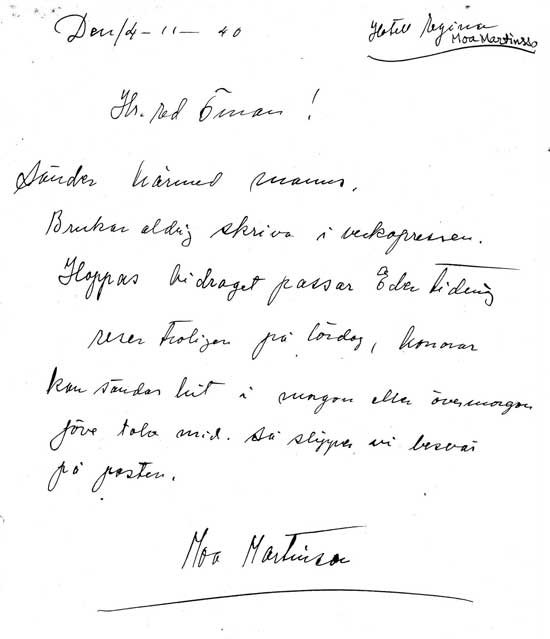 Den 14-11-40
Hotell Regina
Moa Martinsso
Hr. red Öman!
Sänder härmed manus.
Brukar aldrig skriva i veckopressen.
Hoppas bidraget passar Eder tidning
reser troligen på lördag, honorar
kan sändas hit i morgon eller övermorgon
före tolv mid. så slipper vi besvär
på posten.
Moa Martinson